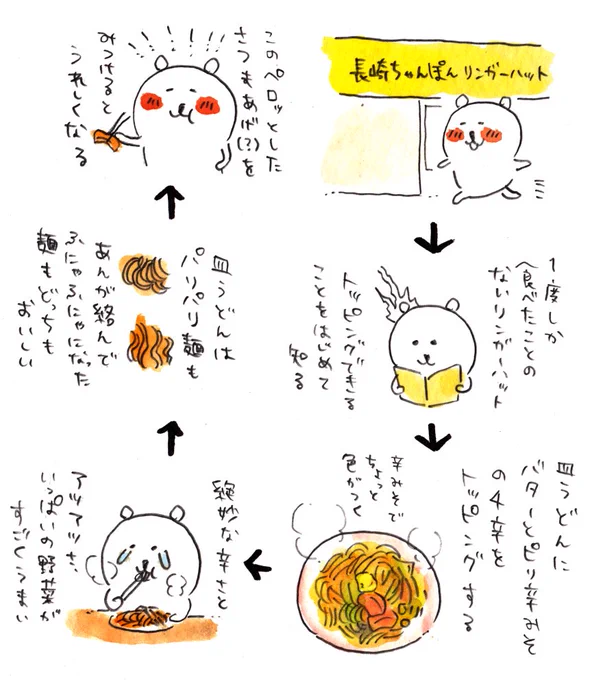 長崎ちゃんぽん リンガーハット
1度しか
食べたことの
ないリンガーハット
トッピングできる
ことをはじめて
知る
皿うどんに
バターとピリ辛みそ
の4辛を
トッピングする
辛みそで
ちょっと
色がつく
絶妙な辛さと
アツアツさ、
いっぱいの野菜が
すごくうまい
皿うどんは
パリパリ麺も
あんが絡んで
ふにゃふにゃになった
麺もどっちも
おいしい
このペロッとした
さつまあげ(?)を
みつけると
うれしくなる